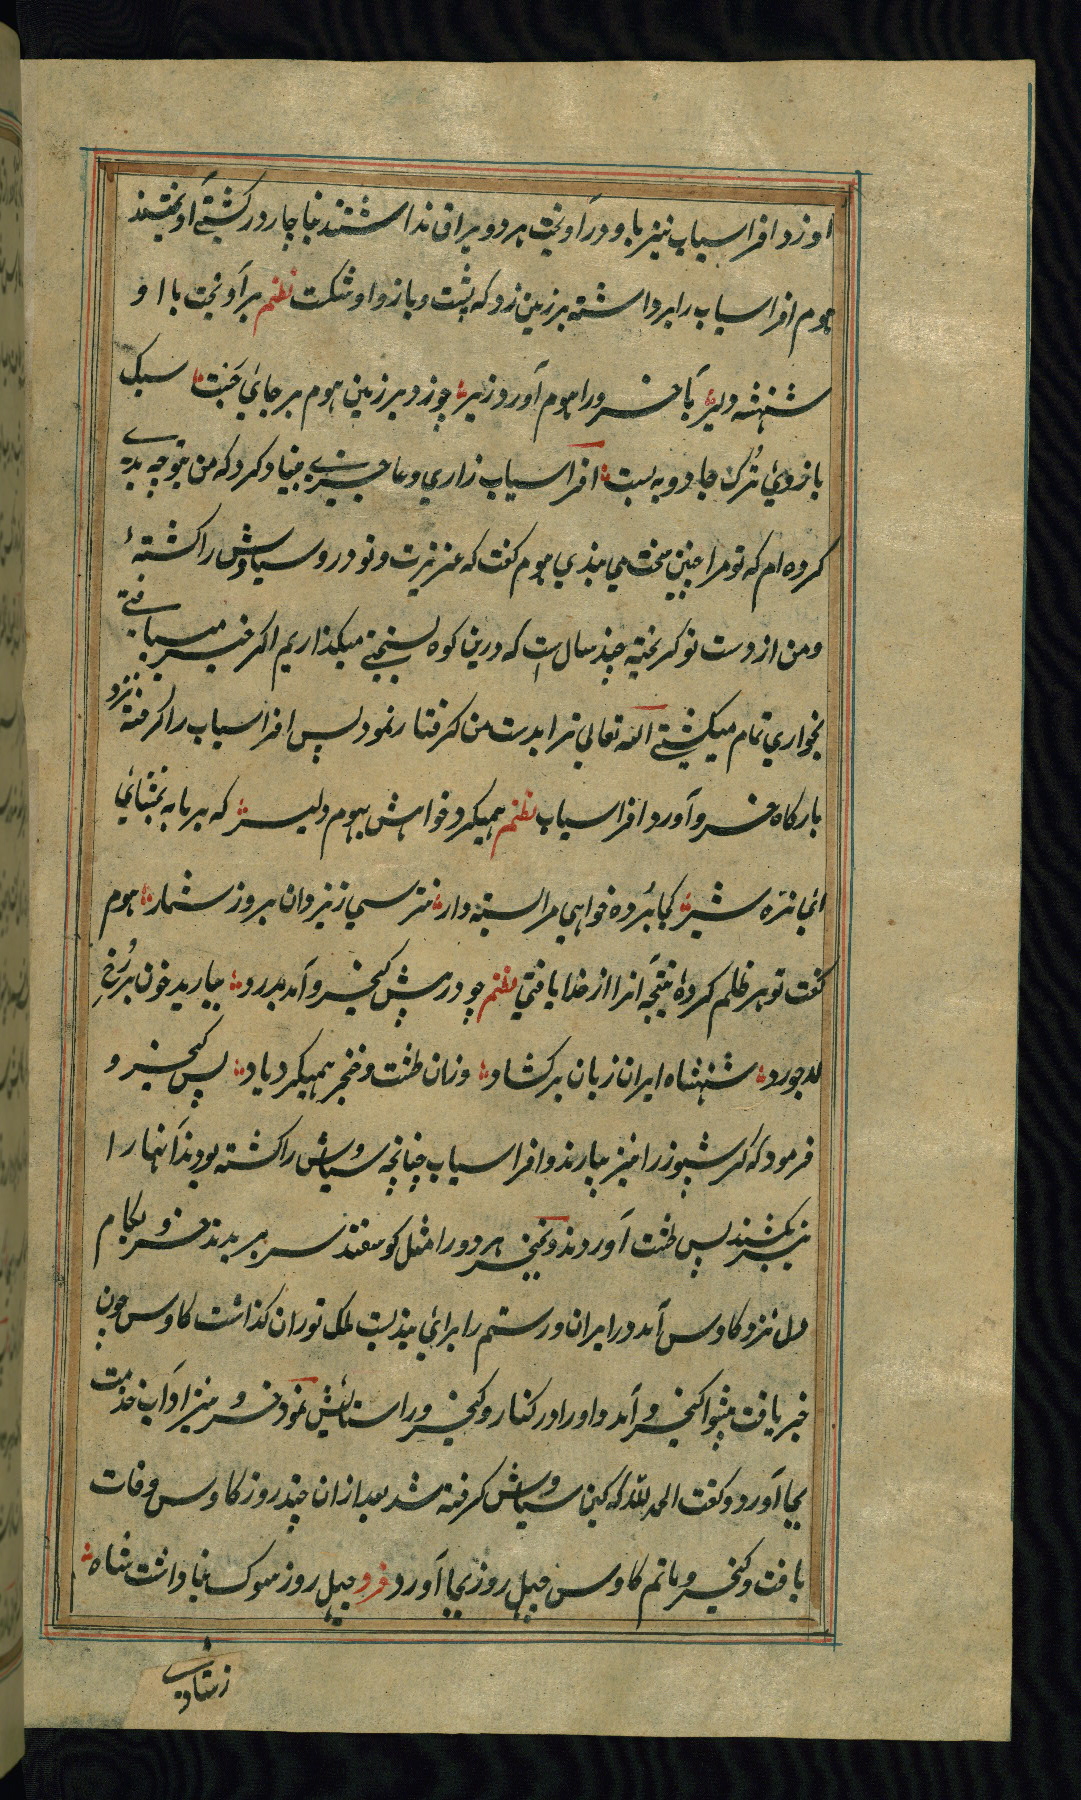 او زد و افراسیاب نیز با و در آویخت هر دو یراق نداشتند بناچار در کشتی آویختند
هوم افراسیاب را برداشته بر زمین زد که پشت و بازو او شکست نظم برآویخت با او
شهنشه دلیر بآخر ورا هوم آورد زیر چو زد بر زمین هوم بر جای جست سبک
بازوی ترک جادو به بست افراسیاب زاری و عاجزی بنیاد کرد که من بتو چه بدی
کرده ام که تو مرا چنین سخت می بندی هوم گفت که عزیرت و نوذر و سیاوش را کشتهٔ
و من از دست تو گریخته چند سال است که درین کوه بسختی میگذاریم اکر خبر مییافتی
بخواری تمام میکشتی الله تعالی ترا بدست من گرفتار نمود پس افراسیاب را گرفته نزد
بارگاه خسرو آورد افراسیاب نظم همیکرد خواهش بهوم دلیر که بر ما به بخشای
ای نره شیر کجا برده خواهی مرا بسته دار نترسی ز یزدان بروز شمار هوم
گفت تو هر ظلم کردهٔ نتیجه آنرا از خدا یافتی نظم چو در پیش کیخسرو آمد بدرد ببارید خون بر رخ
لاجورد شهنشاه ایران زبان برکشاد وزان طشت و خنجر همیکرد یاد پس کیخسرو
فرمود که کرشیوز را نیز بیارند و افراسیاب چنانچه سیاوش را کشته بودند آنها را
نیز بکشند پس طشت آوردند و خنجر هر دو را مثل کوسفند سر ببریدند خسرو بکام
دل نزد کاوس آمد در ایران و رستم را برای بندبست ملک توران گذاشت کاوس چون
خبر یافت پیشوا کیخسرو آمد و او را در کنار و کیخسرو را ستایش نمود خسرو نیز آداب خدمت
بجا آورد و گفت الحمد لله که کین سیاوش گرفته شد بعد ازان چند روز کاوس وفات
یافت و کیخسرو ماتم کاوس چهل روز بجا آورد فرد چهل روز سوک نیا داشت شاه
ز شادی